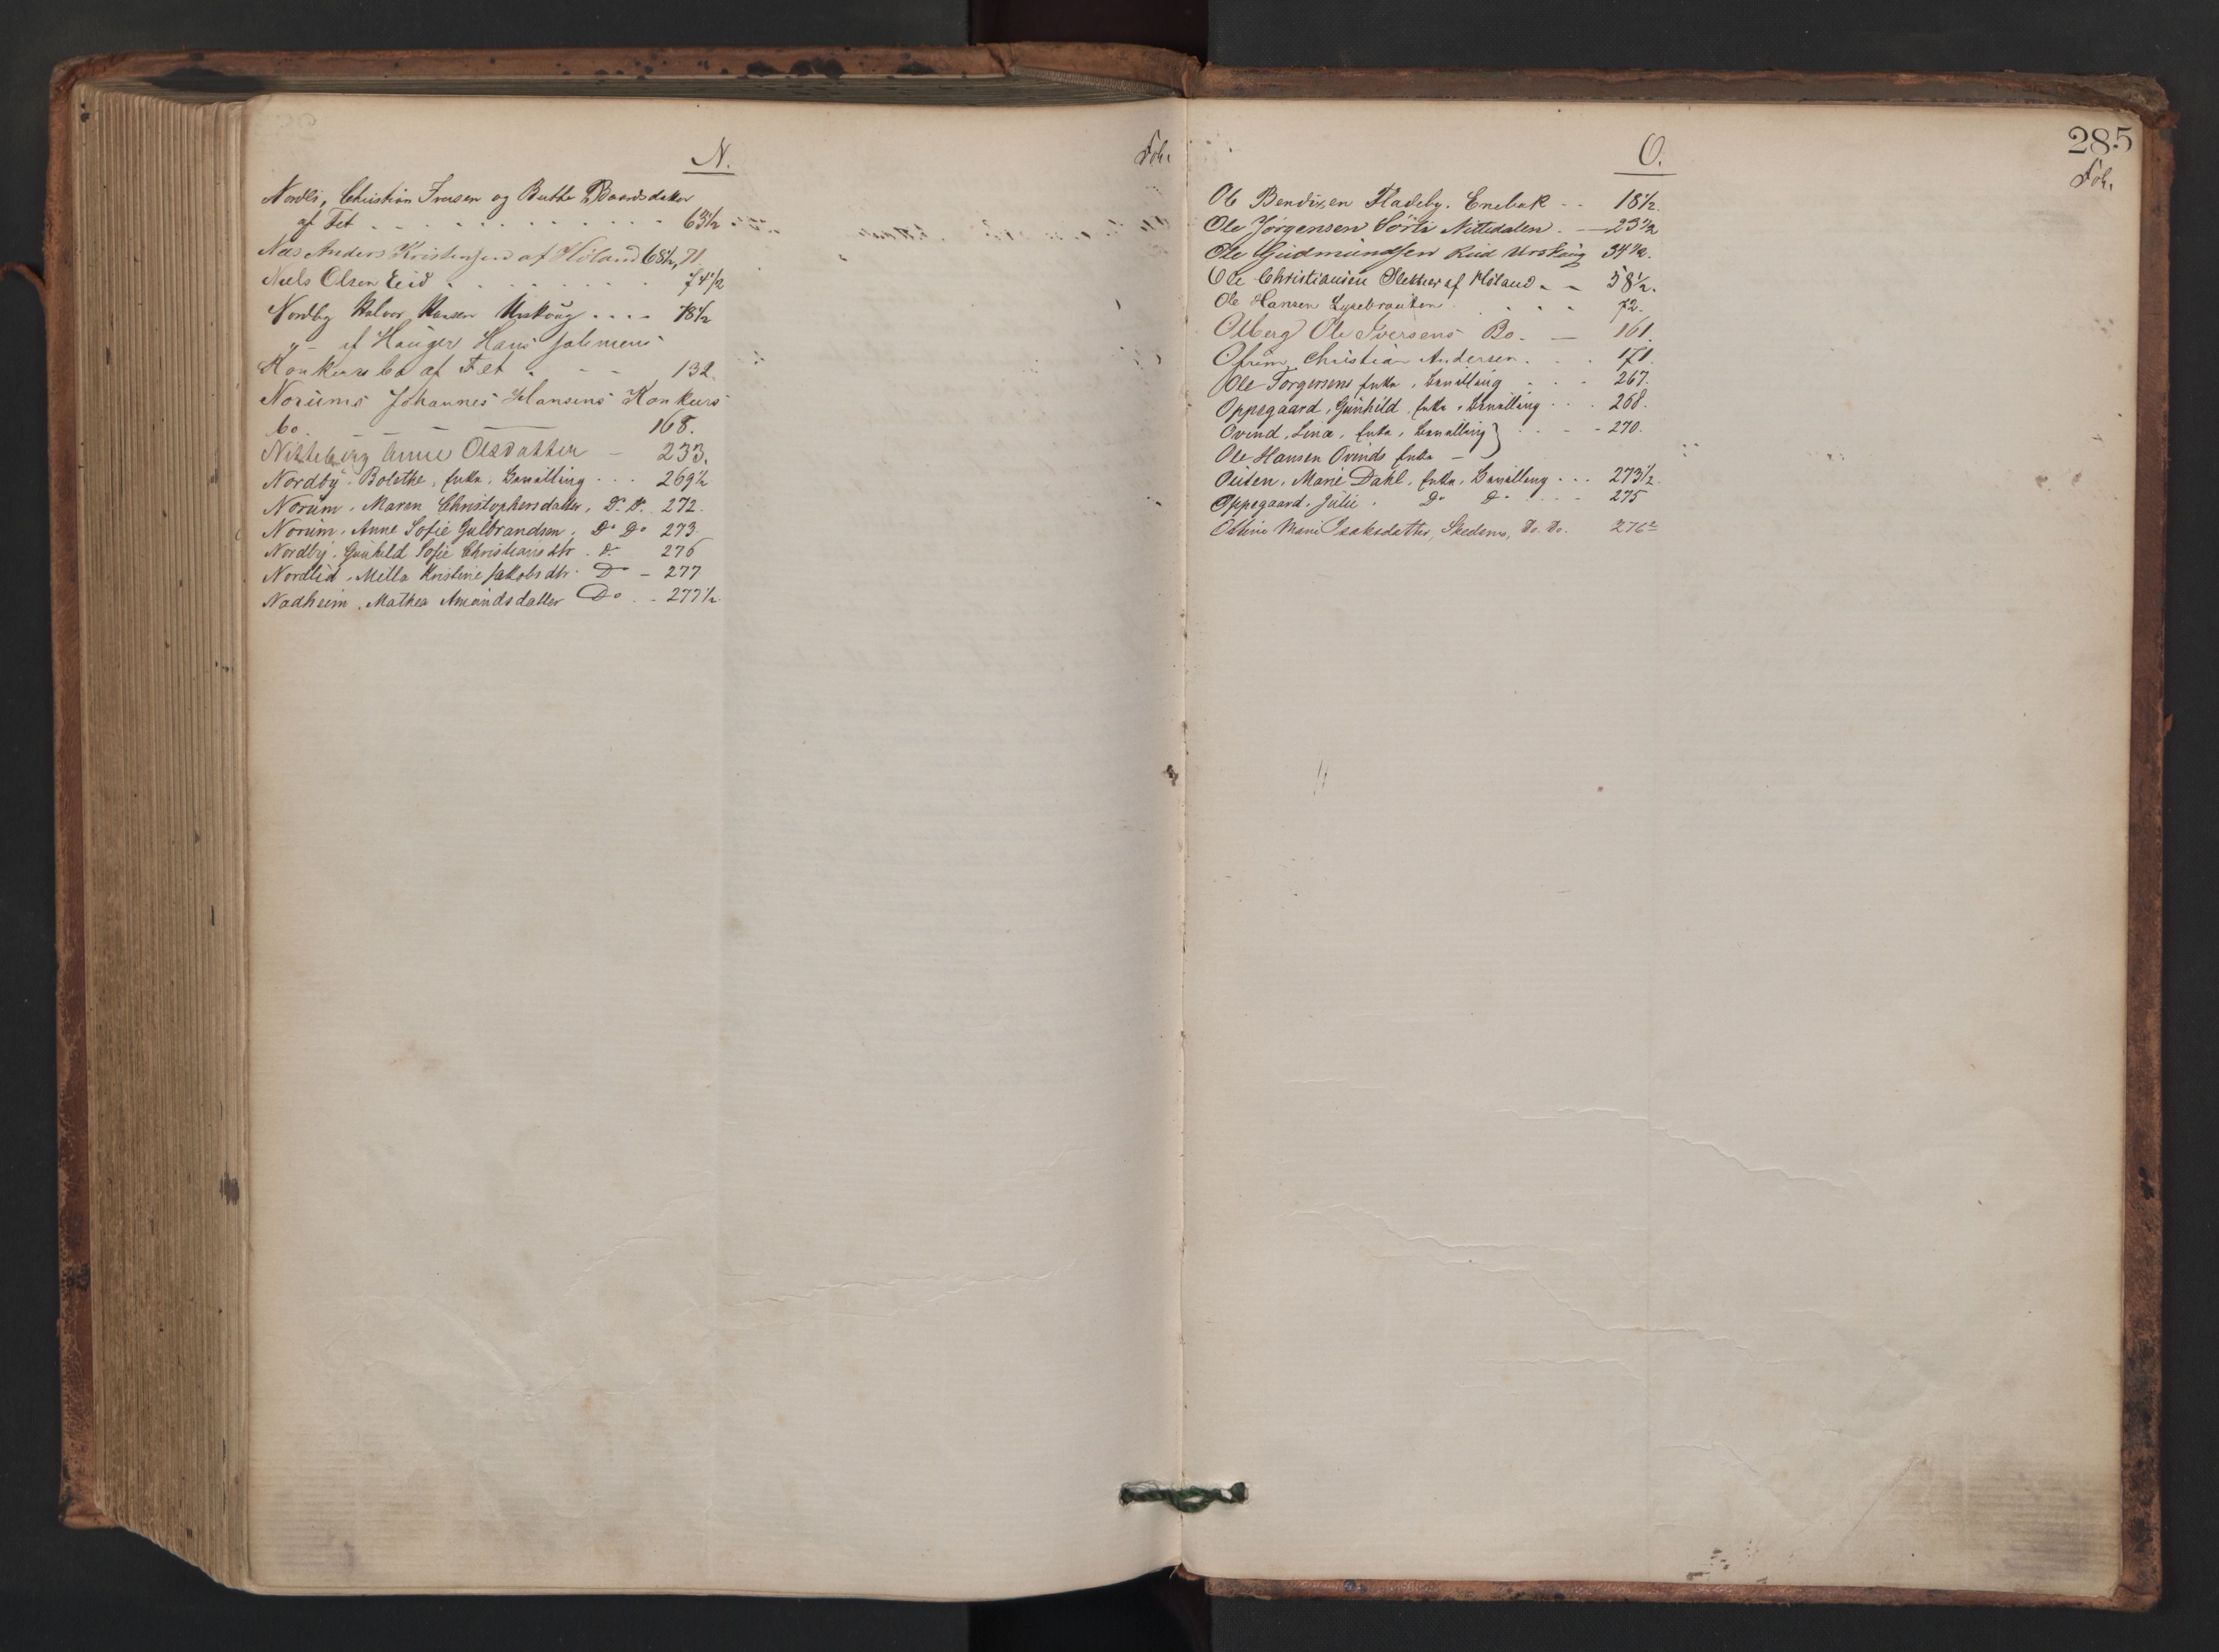 N.
Fol.
Nordli, Christian Iversen og Berthe Baardsdatter
af Fet 63 1/2
Næs Anders Kristensen af Höland 68 1/2, 71.
Niels Olsen Eid 74 1/2
Nordby Halvor Hansen Urskoug 78 1/2
„ - af Hauger Hans Jolemens
Konkursbo af Fet 132.
Norums Johannes Hansens Konkurs
bo. 168.
Nitteberg Anne Olsdatter 233.
Nordby. Bolethe, enke, bevilling 269 1/2
Norum. Maren Christophersdatter, Do Do 272.
Norum. Anne Sofie Gulbrandsen, Do Do 273
Nordby. Gunhild Sofie Christiansdtr. Do 276
Nordlid. Milla Kristine Jakobsdtr. Do 277
Nadheim. Mathea Amundsdatter Do 277 1/2
285
O.
Fol.
Ole Bendixen Fladeby. Enebak 18 1/2.
Ole Jörgensen Sörli Nittedalen. 23 1/2
Ole Gudmundsen Rud Urskoug 34 1/2.
Ole Christiansen Sletner af Höland 58 1/2.
Ole Hansen Lysebrauten 72.
Olberg Ole Iversens Bo. 161.
Ofrim Christian Andersen. 171.
Ole Torgersens enke, bevilling 267.
Oppegaard, Gunhild, enke, bevilling 268.
Ovind, Lina, enke, bevilling } 270.
Ole Hansen Ovinds enke -
Outen, Marie Dahl, enke, bevilling 273 1/2.
Oppegaard. Julie. Do Do 275
Oline Marie Isaksdatter, Skedsmo, Do. Do. 276